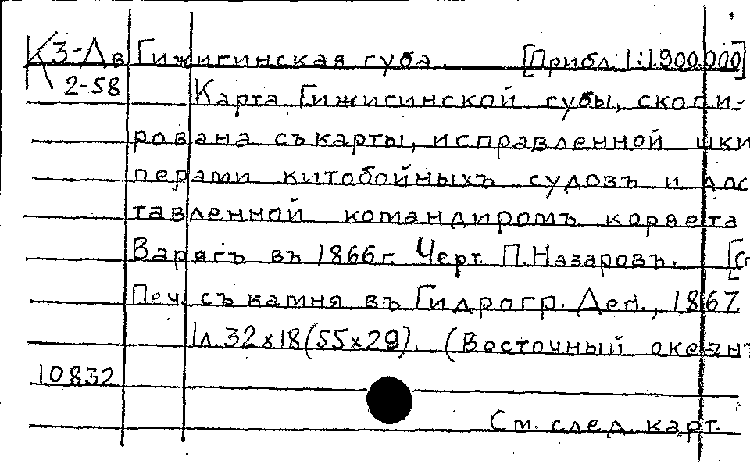 К3-Дв Гижигинская губа. [Прибл. 1:1.900.000]
2-58 Карта Гижигинской губы, скопи-
рована съ карты, исправленной шки
перами китобойныхъ судовъ и дос
тавленной командиромъ корвета
Варягъ въ 1866 г. Черт. П. Назаровъ.
Печ. съ камня въ Гидрогр. Деп., 1867
1л. 32х18(55х29). (Восточный океанъ
10832
См. след. карт.